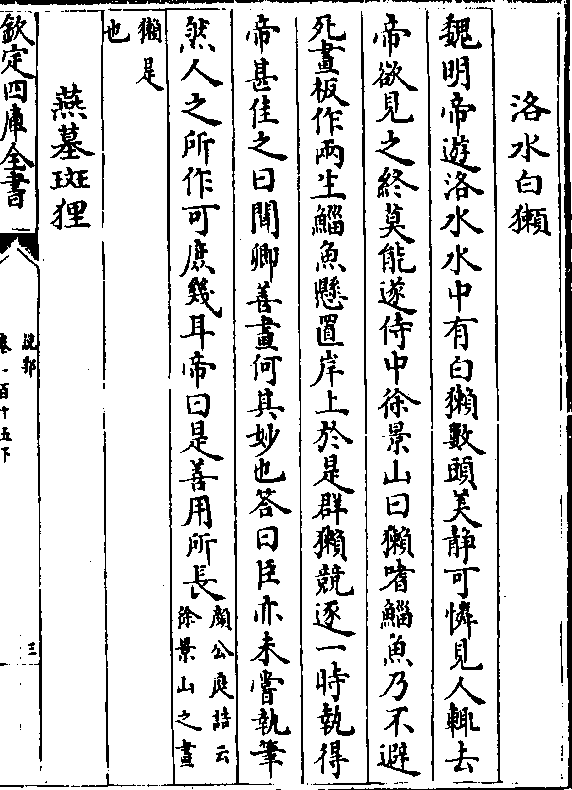 洛水白獺
魏明帝遊洛水水中有白獺數頭美静可憐見人輒去
帝欲見之終莫能遂侍中徐景山曰獺嗜鯔魚乃不避
死畫板作兩生鯔魚懸置岸上於是群獺競逐一時執得
帝甚佳之曰聞卿善畫何其妙也答曰臣亦未嘗執筆
然人之所作可庶幾耳帝曰是善用所長
顔公庭誥云
徐景山之畫
獺是
也
燕墓斑狸
欽定四庫全書
說郛
卷一百十五下
三